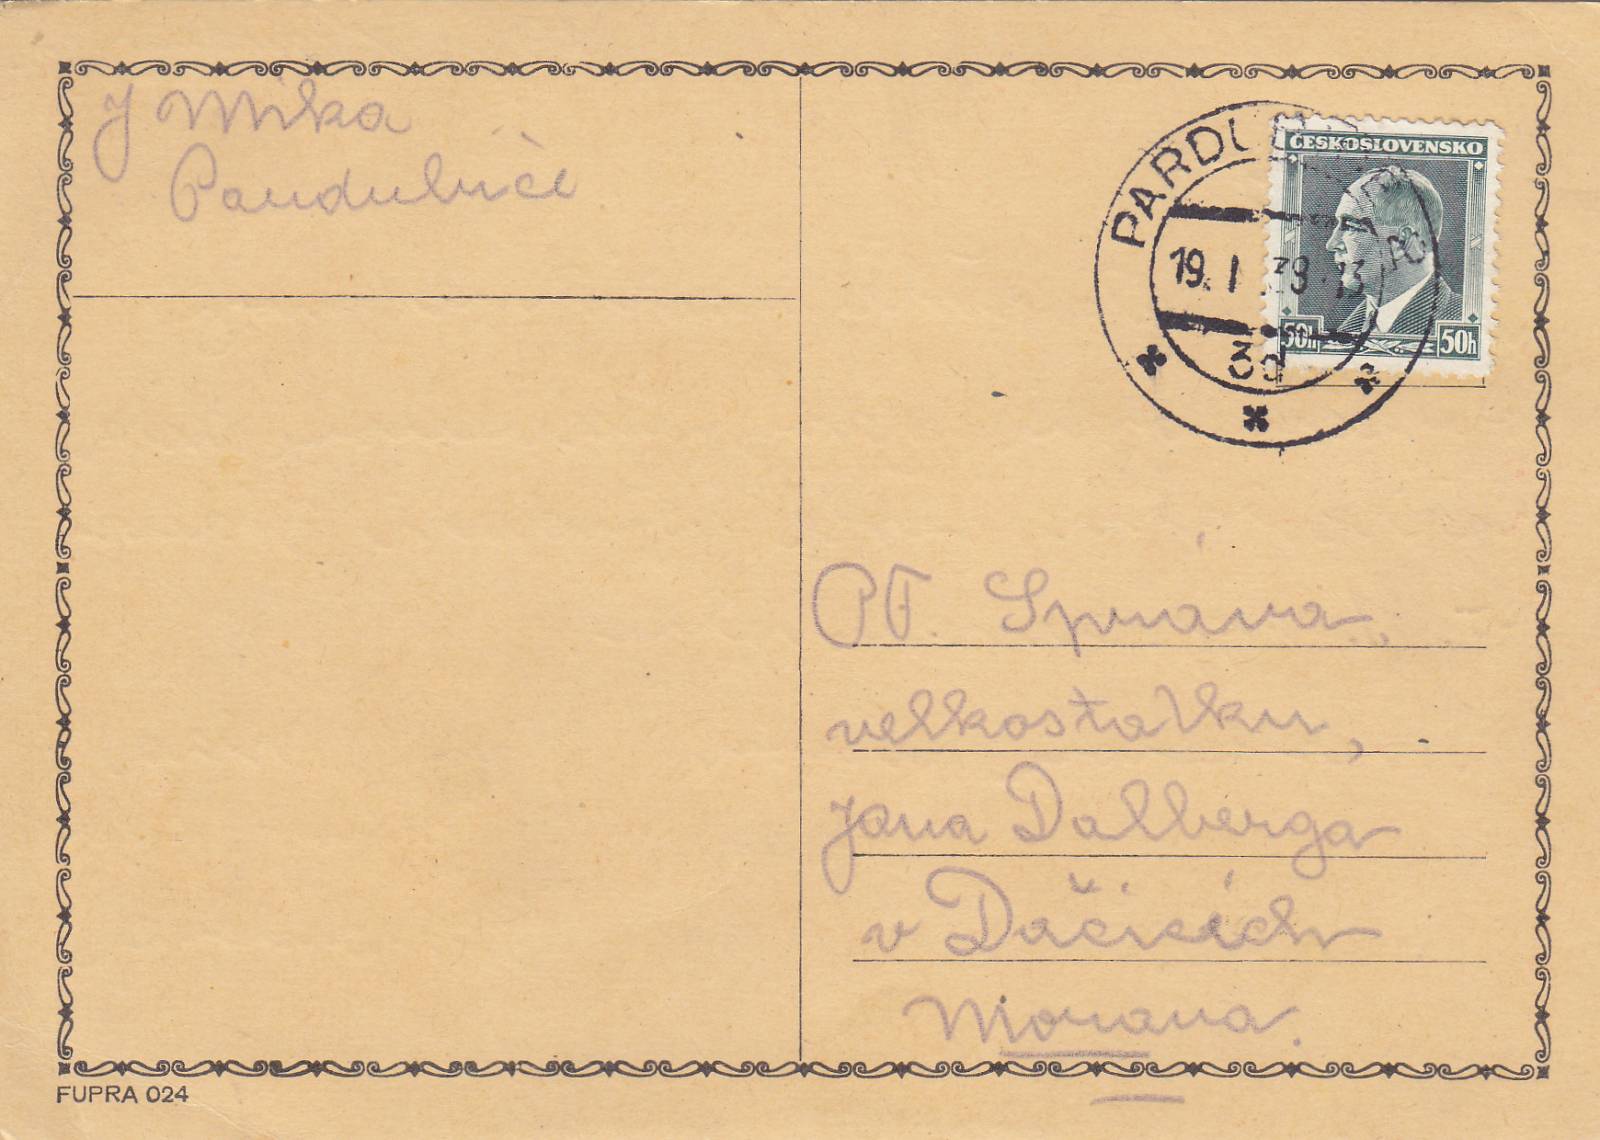 J Mika
Pardubice
PARDUBICE
ČESKOSLOVENSKO
19. I 39.-13
3d
50h 50h
PT. Správa
velkostatku,
Jana Dalberga
v Dačicích
Morava.
FUPRA 024